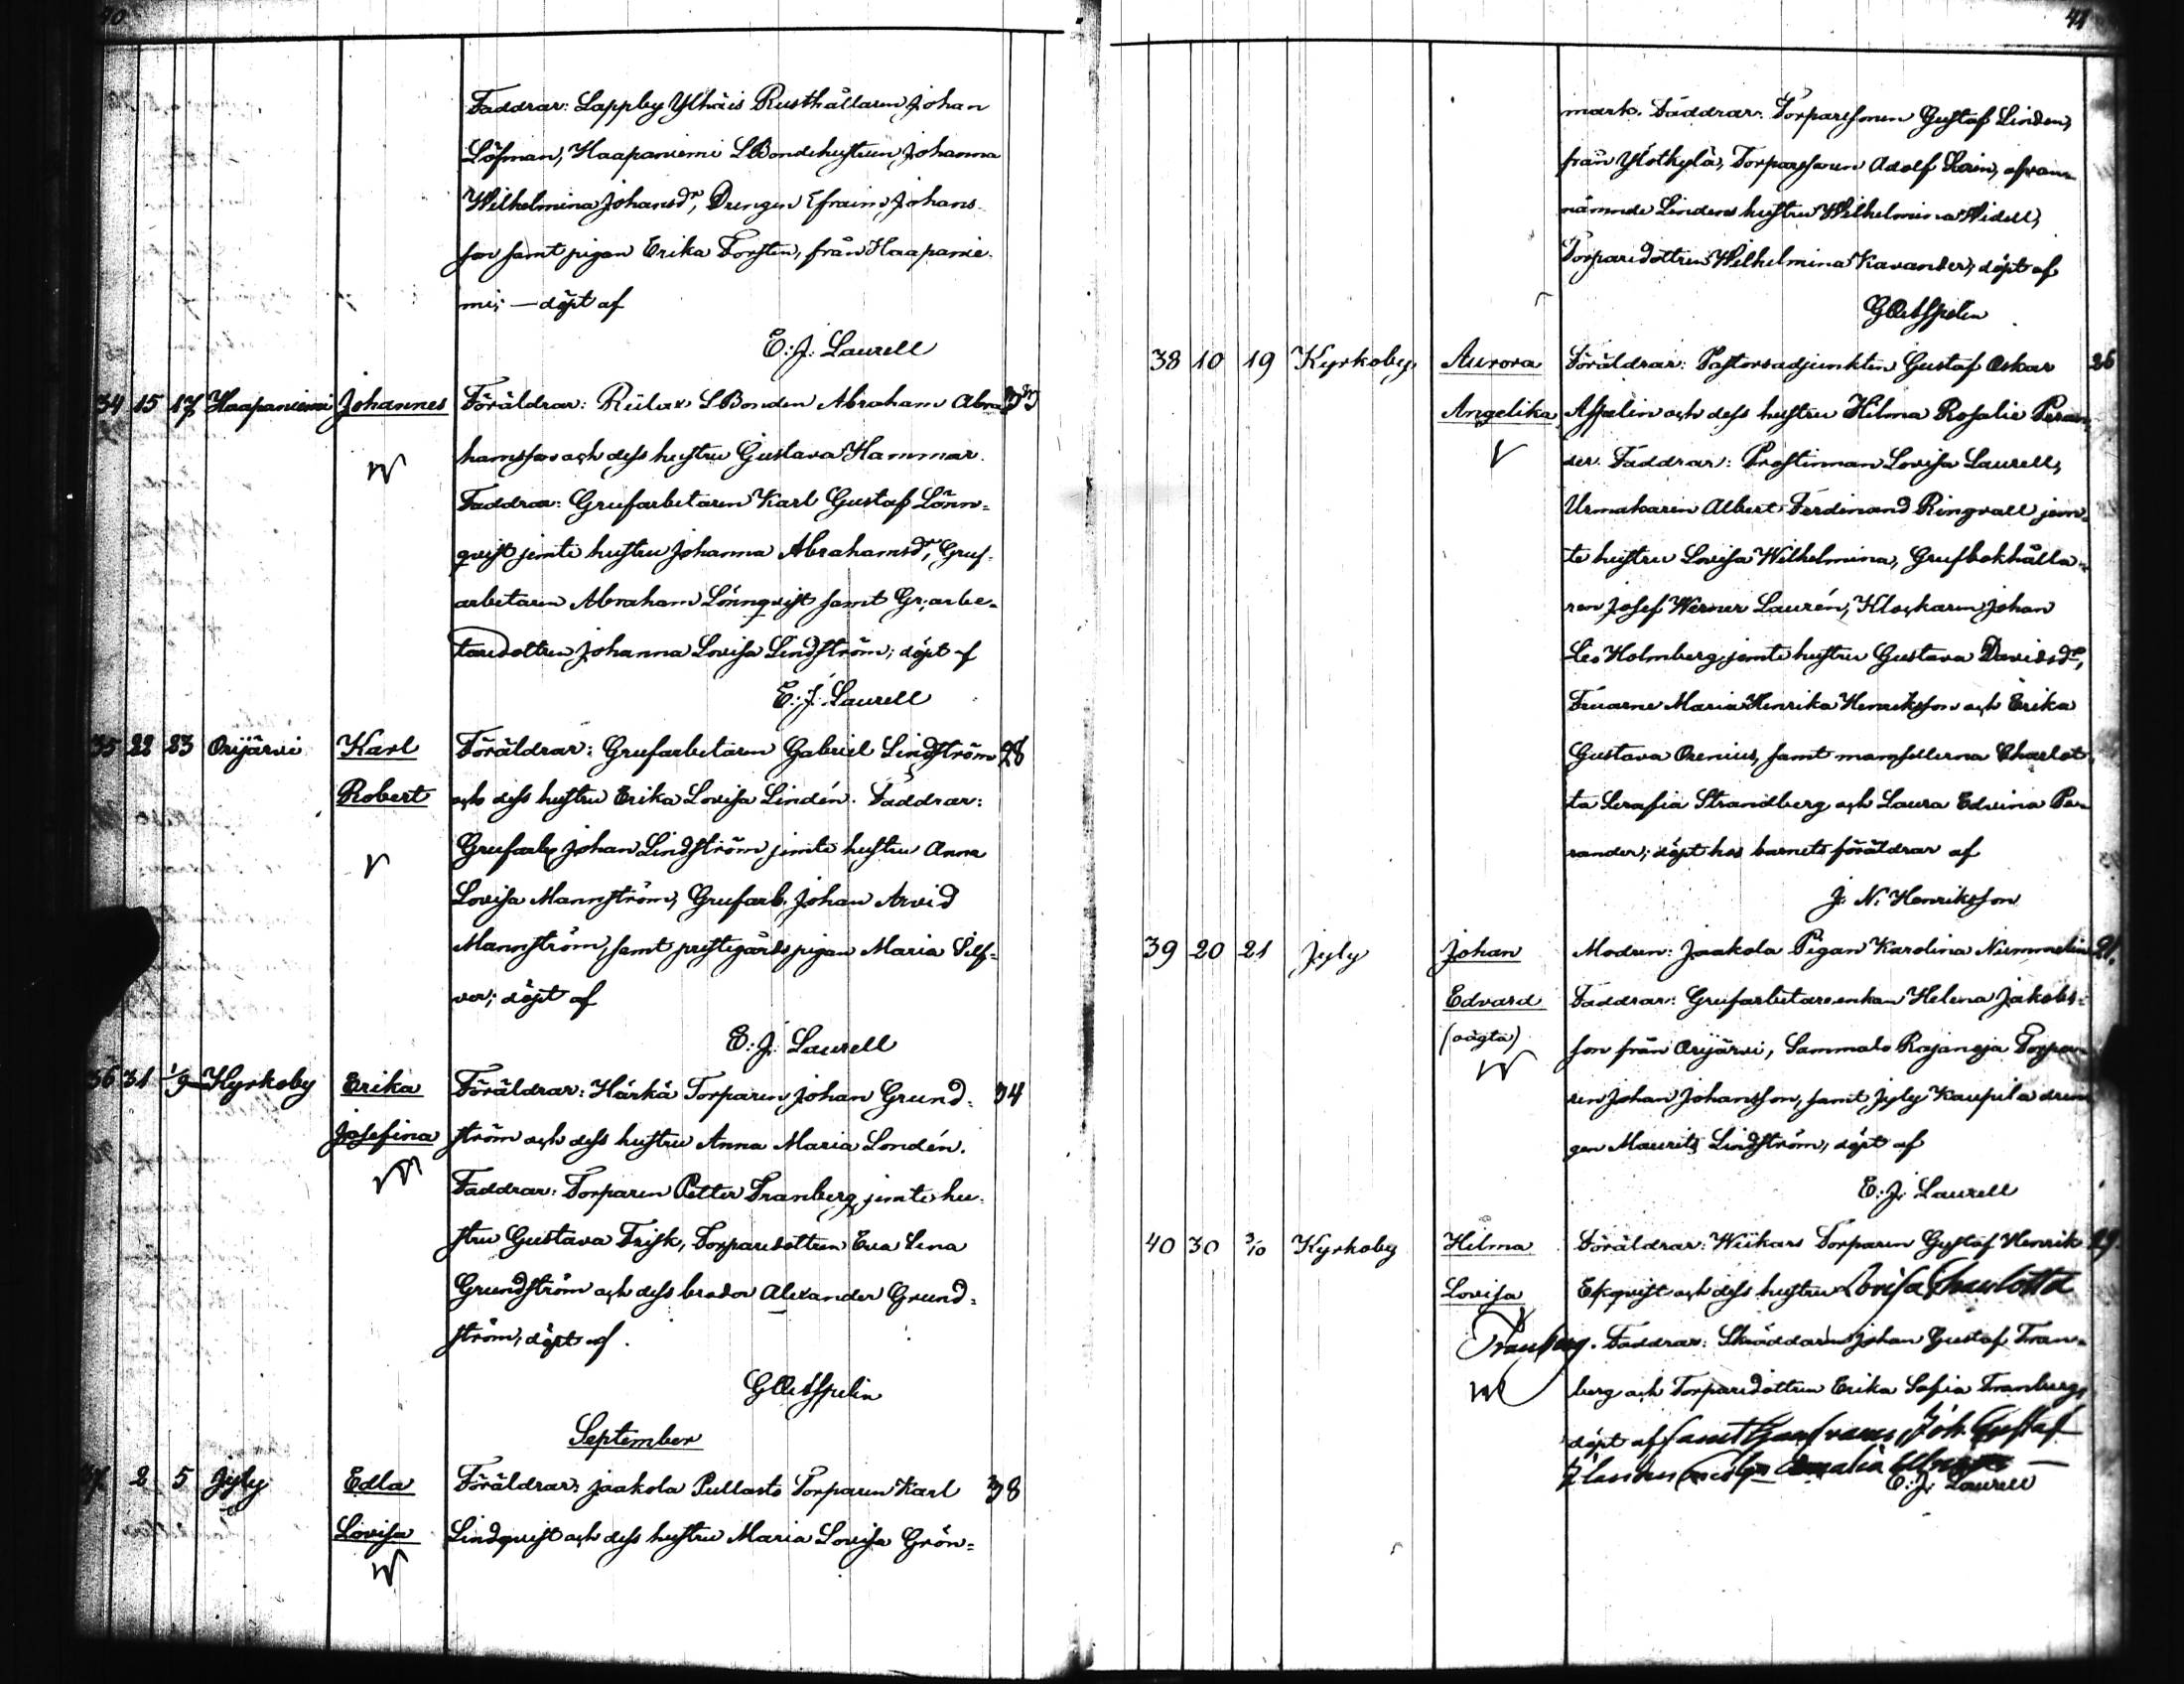 40
Faddrar: Lappby Ylhäis Rusthållaren Johan
Löfman, Haapaniemi LBondehustrun Johanna
Wilhelmina Johansdr, Drengen Efraim Johans-
son samt pigan Erika Forstén, från Haapanie-
mi; — döpt af
E. J. Laurell
34 15 17 Haapaniemi Johannes Föräldrar: Rülax LBonden Abraham Abra- 33
hamsson och dess hustru Gustava Hammar.
Faddrar: Grufarbetaren Karl Gustaf Lönn-
qvist jemte hustru Johanna Abrahamsdr, Gruf-
arbetaren Abraham Lönnqvist samt Gr:arbe-
taredottren Johanna Lovisa Lindström; döpt af
E. J. Laurell
35 22 23 Orijärvi Karl Föräldrar: Grufarbetaren Gabriel Lindström 28
Robert och dess hustru Erika Lovisa Lindén. Faddrar:
Grufarb. Johan Lindström jemte hustru Anna
Lovisa Mannström, Grufarb. Johan Arvid
Mannström, samt prestegårdspigan Maria Silf-
ver; döpt af
E. J. Laurell
36 31 1/9 Kyrkoby Erika Föräldrar: Härkä Torparen Johan Grund- 34
Josefina ström och dess hustru Anna Maria Londén.
Faddrar: Torparen Petter Tranberg jemte hu-
stru Gustava Frisk, Torparedottren Eva Lena
Grundström och dess broder Alexander Grund-
ström; döpt af
GOAsspelin
September
37 2 5 Jyly Edla Föräldrar: Jaakola Pullasto Torparen Karl 38
Lovisa Lindqvist och dess hustru Maria Lovisa Grön-
41
mark. Faddrar: Torparesonen Gustaf Linden,
från Ylötkylä, Torparesonen Adolf Lain, ofvan-
nämnde Lindens hustru Wilhelmina Widell,
Torparedottren Wilhelmina Kavander; döpt af
GOAsspelin
38 10 19 Kyrkoby Aurora Föräldrar: Pastorsadjunkten Gustaf Oskar 26
Angelika Asspelin och dess hustru Hilma Rosalie Peran-
der. Faddrar: Prostinnan Lovisa Laurell,
Urmakaren Albert Ferdinand Ringvall jem-
te hustru Lovisa Wilhelmina, Grufbokhålla-
ren Josef Werner Laurén, Klockaren Johan
Leo Holmberg jemte hustru Gustava Davidsdr,
Fruarne Maria Henrika Henriksson och Erika
Gustava Orenius, samt mamsellerna Charlot-
ta Serafia Strandberg och Laura Edvina Pe-
rander; döpt hos barnets föräldrar af
J. N. Henriksson
39 20 21 Jyly Johan Modren: Jaakola Pigan Karolina Nummelin 21.
Edvard Faddrar: Grufarbetareenkan Helena Jakobs-
(oägta) son från Orijärvi, Sammalo Rajanoja Torpa-
ren Johan Johansson, samt Jyly Kaupila dren-
gen Maurits Lindström, döpt af
E. J. Laurell
40 30 3/10 Kyrkoby Hilma Föräldrar: Wiikars Torparen Gustaf Henrik 29.
Lovisa Ekqvist och dess hustru Lovisa Charlotta
Tranberg. Faddrar: Skräddaren Johan Gustaf Tran-
berg och Torparedottren Erika Sofia Tranberg,
döpt af samt Joh. Gustaf
Amalia
E. J. Laurell